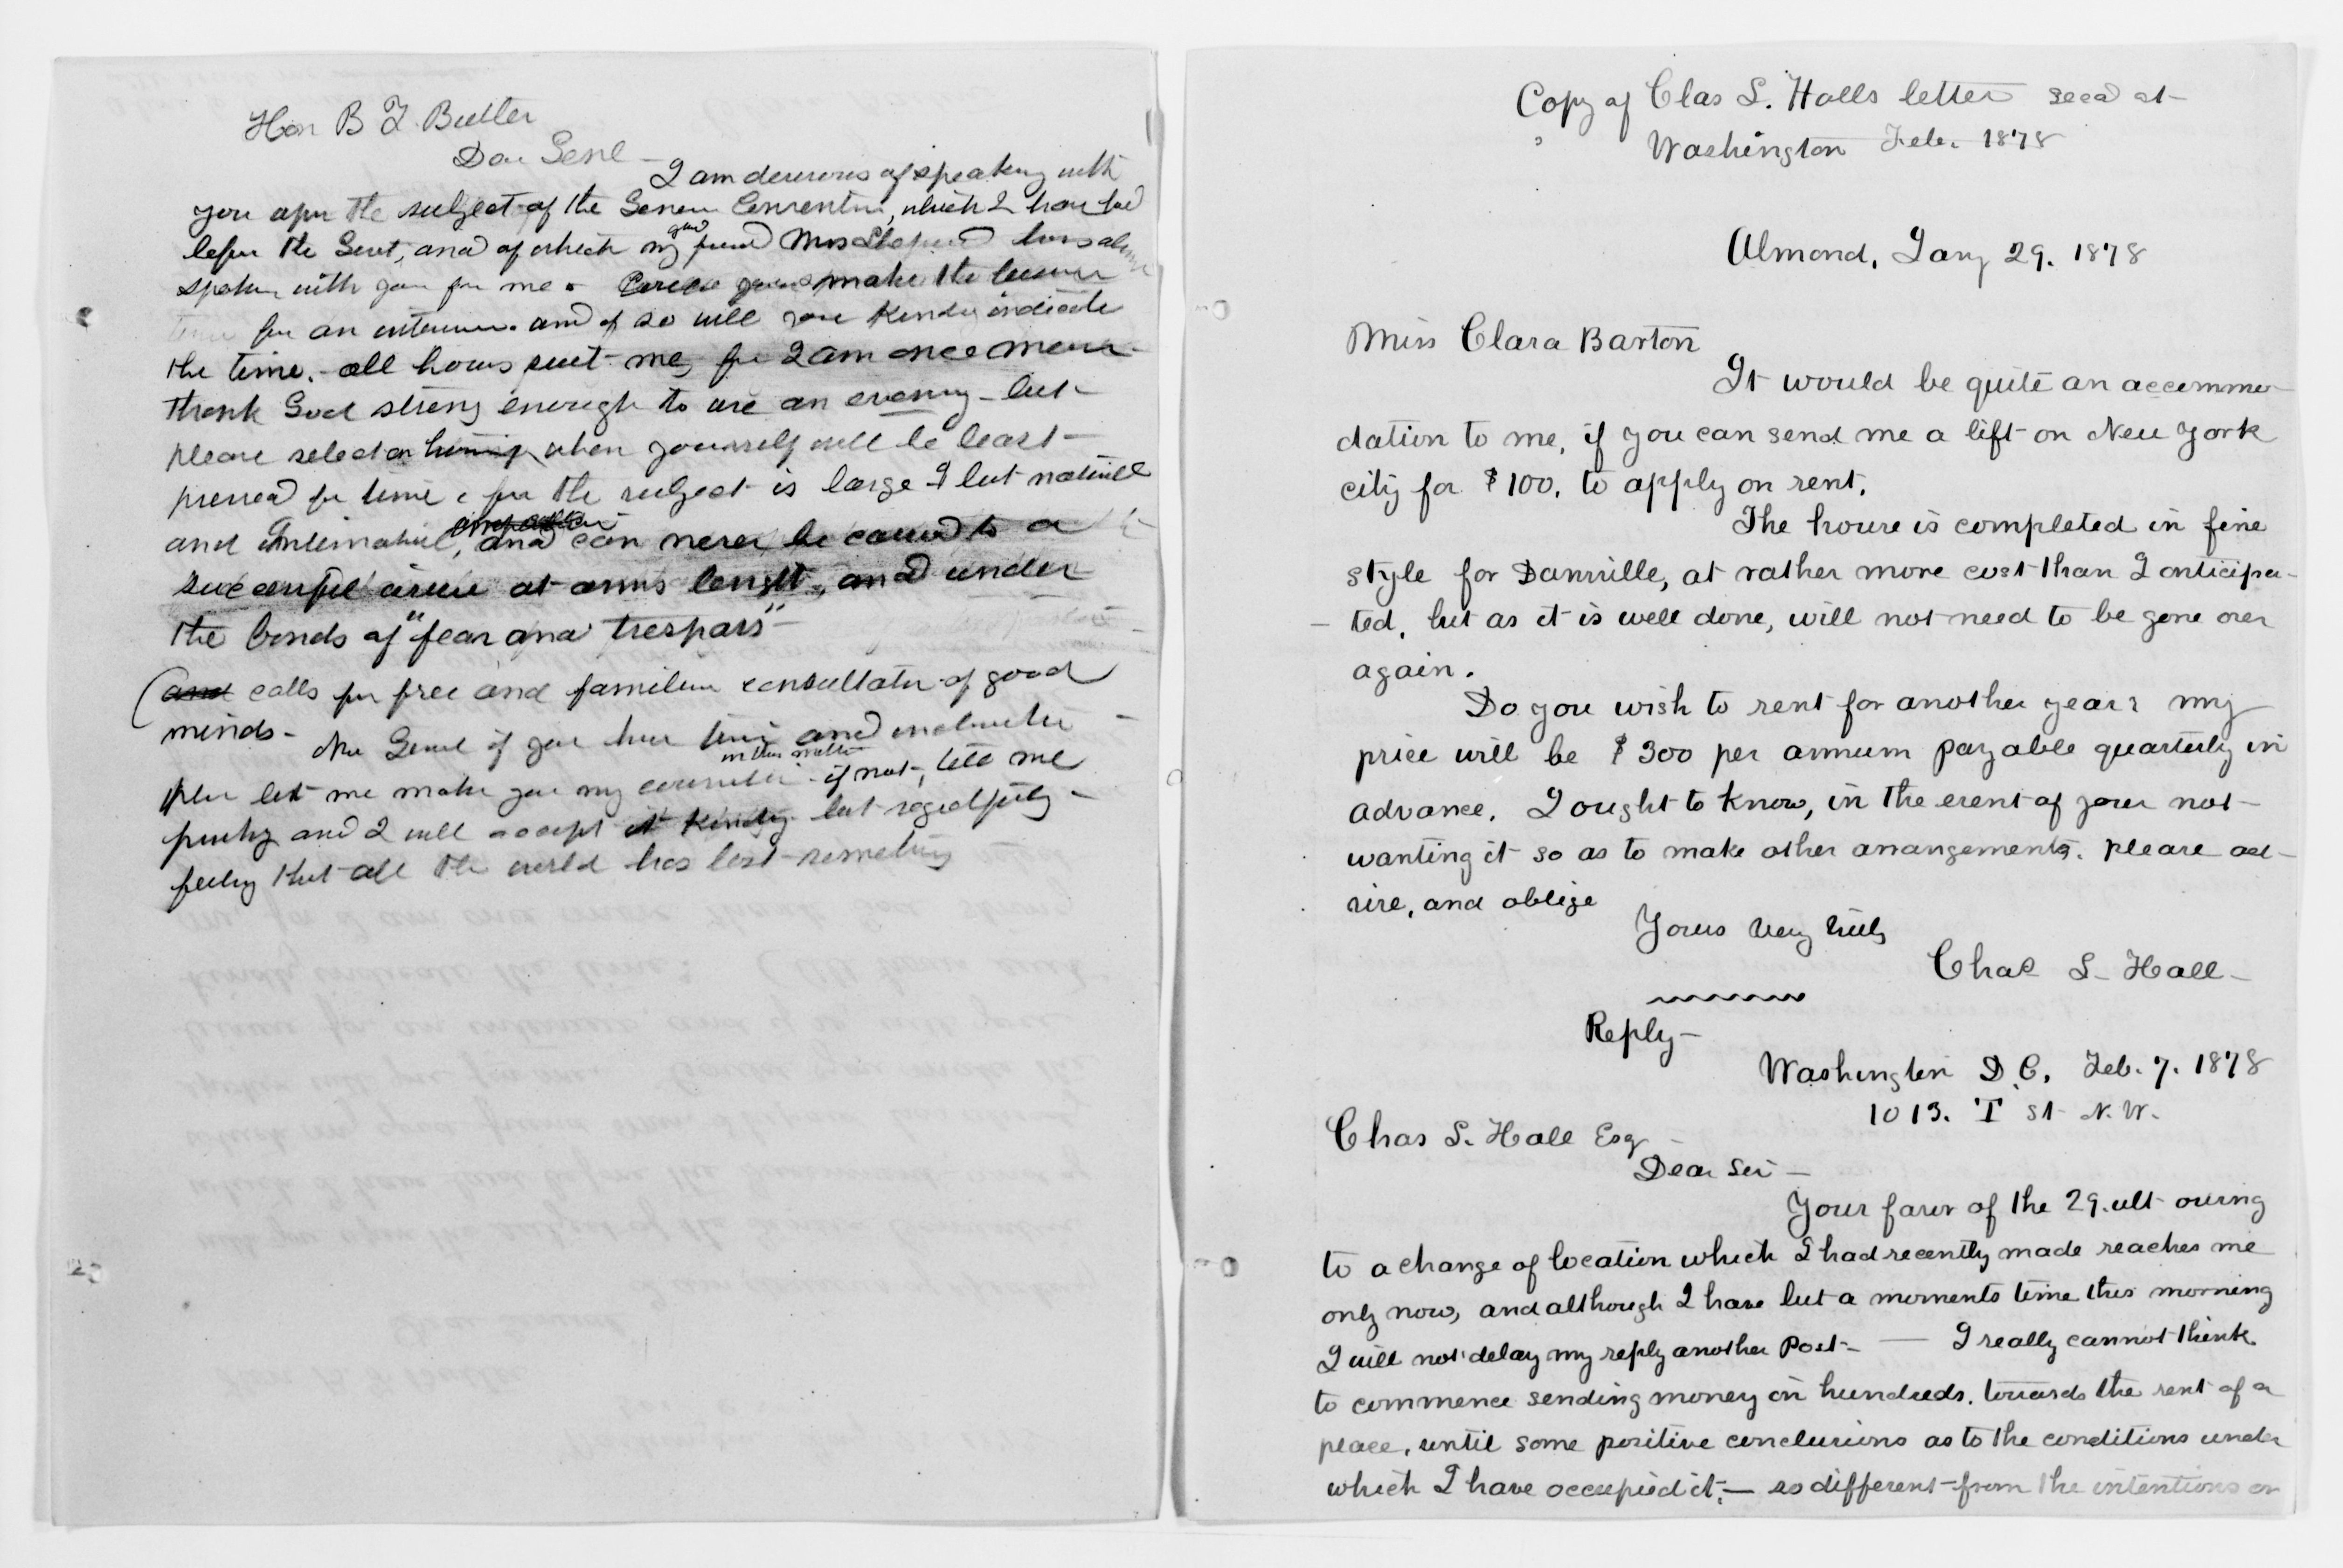 Hon B F Butler
Dear Genl —
I am desirous of speaking with
you upon the subject of the Geneva Convention, which I have laid
before the Govt, and of which my good friend Mrs Shepard has already
spoken with you for me. Could you make the leisure
time for an interview. and if so will you kindly indicate
the time. - all hours suit me, for I am once more
thank God strong enough to use an evening - but
please select an when yourself will be least
pressed for time for the subject is large & but
and and can never be carried to a
successful issue at arms length, and under
the bonds of "fear and trespass" -
(and calls for free and familiar consultation of good
minds -
Now Genl if you have time and inclination
plea let me make you my counselor in this matter - if not, tell me
frankly and I will accept it kindly but regretfully -
feeling that all the world has lost something
Copy of Chas S. Halls letter recd at
Washington Feb. 1878
Almond, Jany 29. 1878
Miss Clara Barton
It would be quite an accommo-
dation to me, if you can send me a lift on New York
city for $100. to apply on rent.
The house is completed in fine
style for Dansville, at rather more cost than I anticipa-
ted, but as it is well done, will not need to be gone over
again.
Do you wish to rent for another year? my
price will be $300 per annum payable quarterly in
advance. I ought to know, in the event of your not
wanting it so as to make other arrangements. please ad-
vise, and oblige
Yours very truly
Chas S. Hall -
Reply -
Washington D.C. Feb. 7. 1878
1013. T St N.W.
Chas S. Hall Esq
Dear Sir -
Your favor of the 29. ult owing
to a change of location which I had recently made reaches me
only now, and although I have but a moments time this morning
I will not delay my reply another Post - — I really cannot think
to commence sending money in hundreds. towards the rent of a
place, until some positive conclusions as to the conditions under
which I have occupied it; — so different from the intentions or